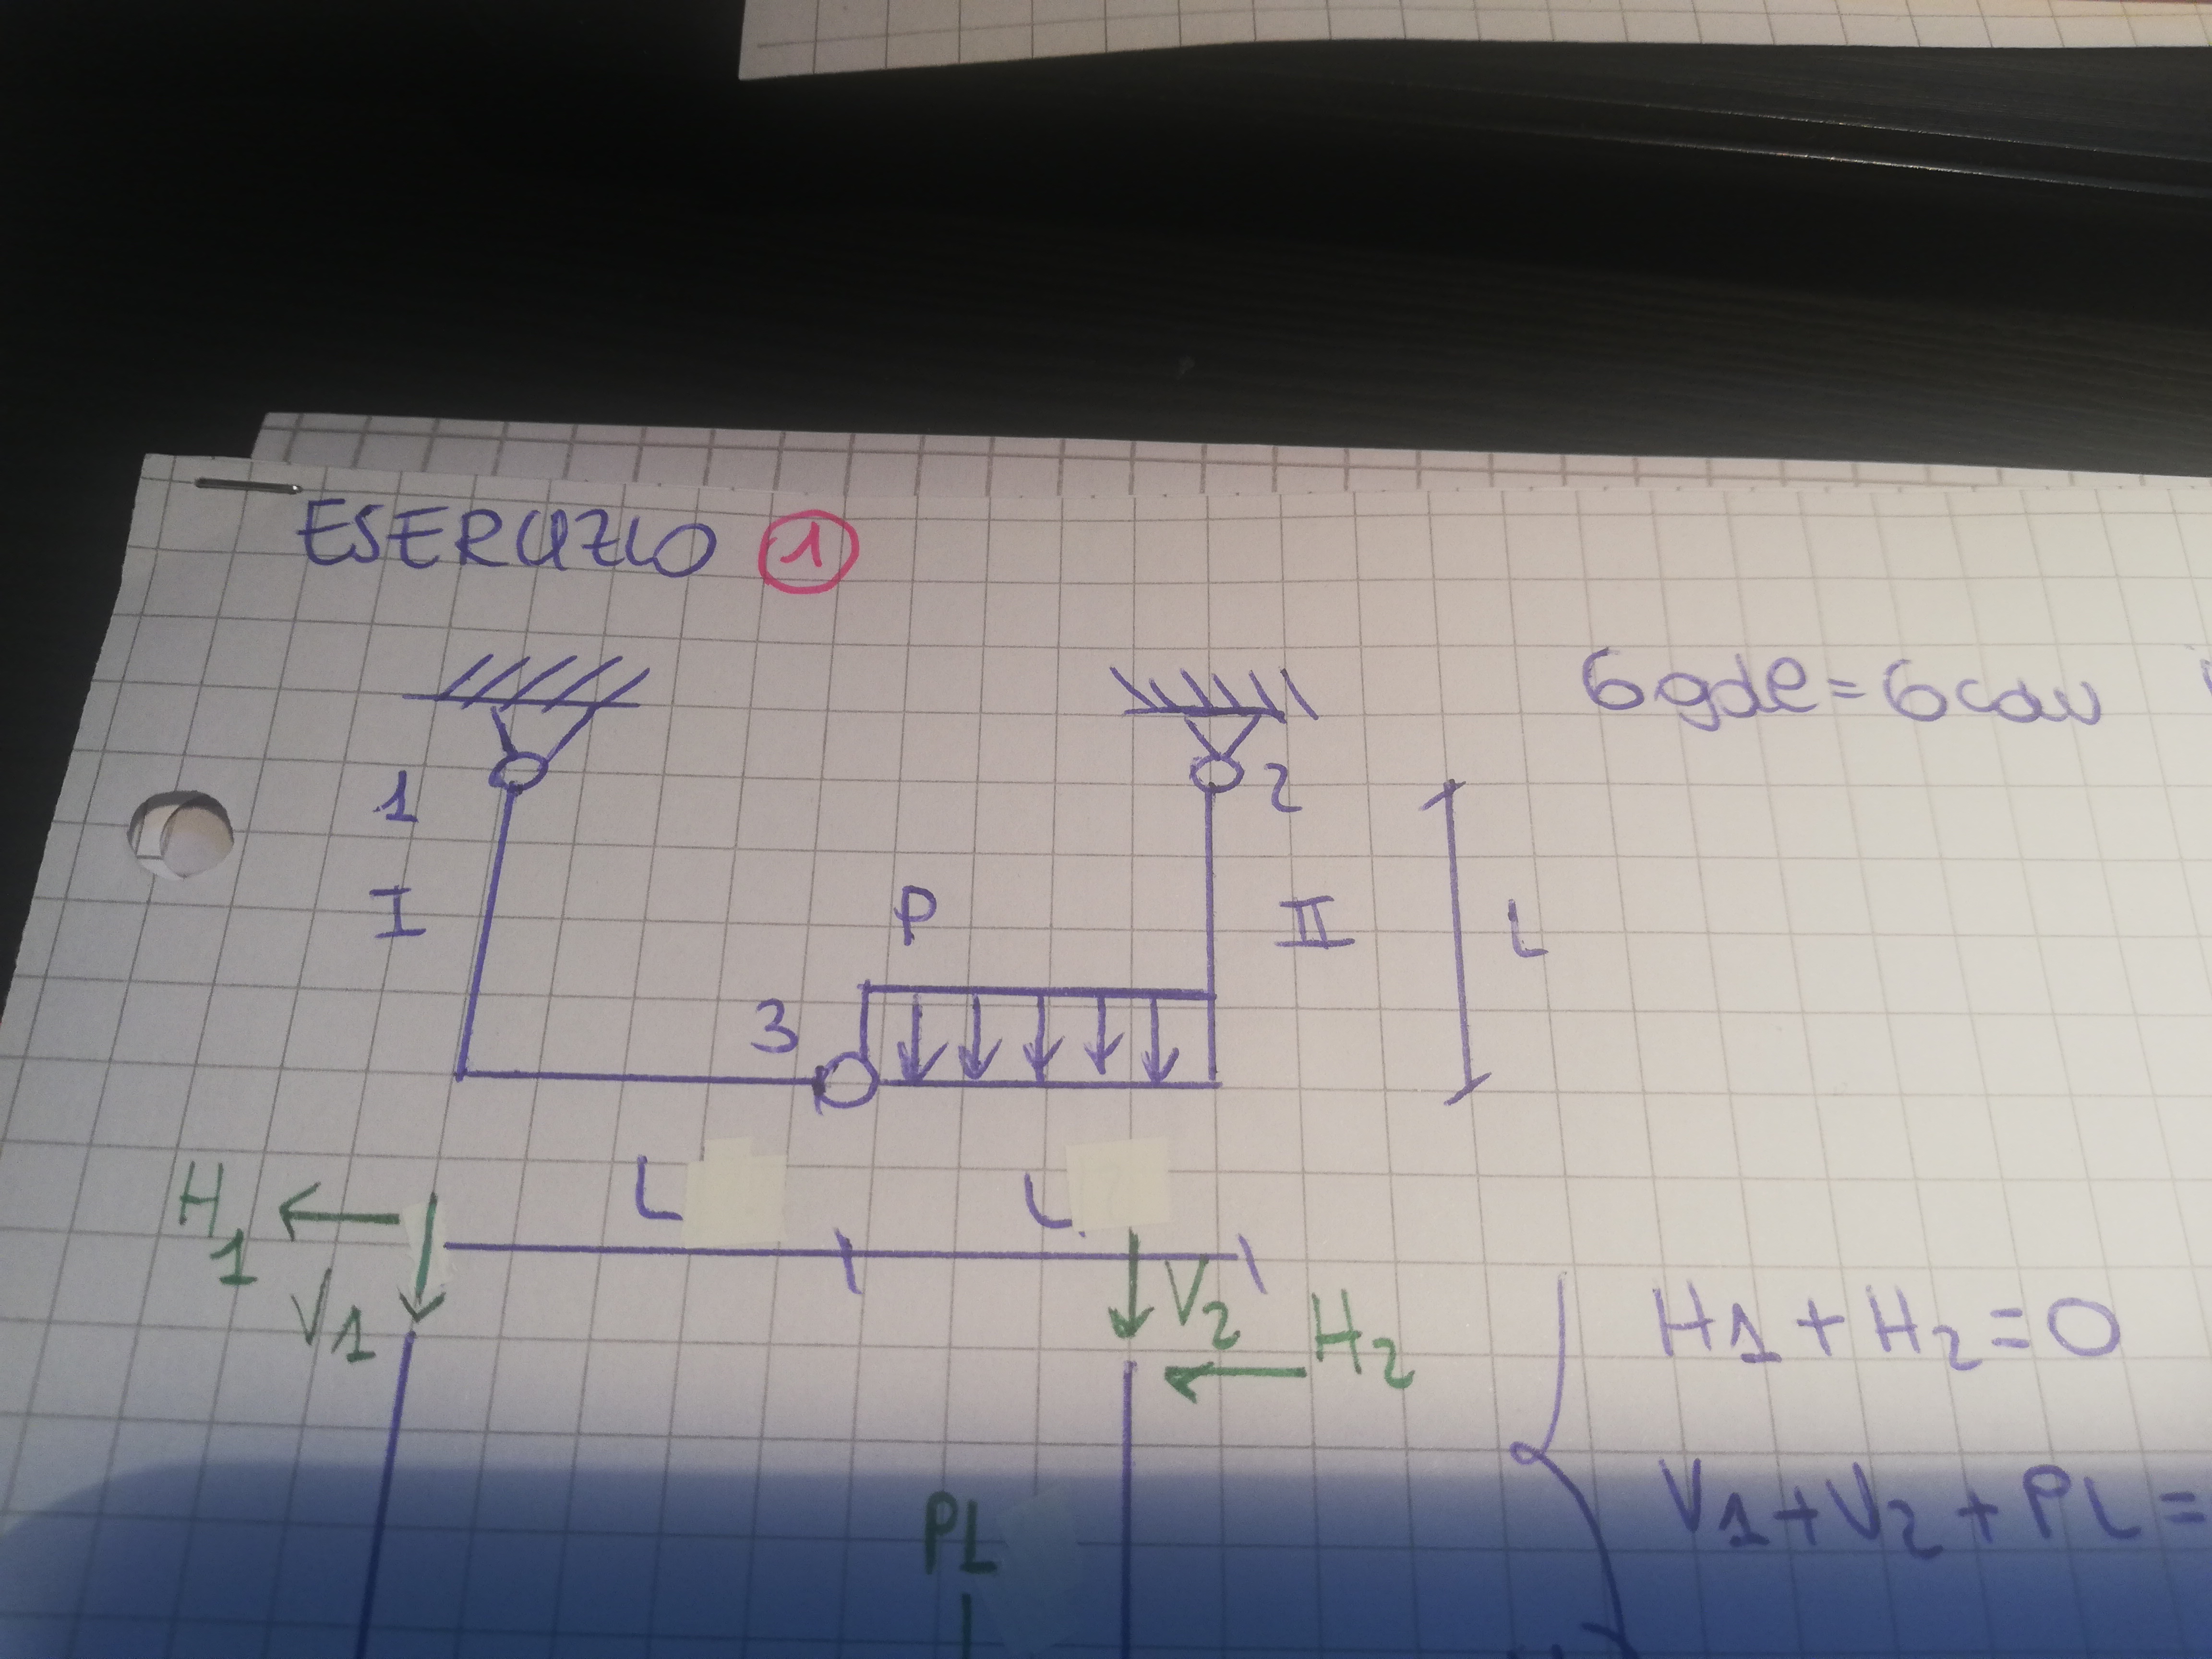 ESERCIZIO 1
6 gdl = 6 cdv
1
2
I
P
II
L
3
L
L
H1
V1
V2
H2
H1 + H2 = 0
V1 + V2 + PL =
PL